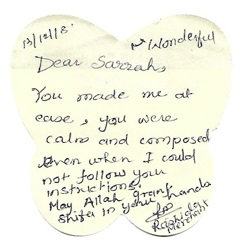 13/12/18
Wonderful
Dear Sarrah,
You made me at
ease, you were
calm and composed
Even when I could
not follow your
instructions,
May Allah grant
shifa in your hands
Rashida
Merchant